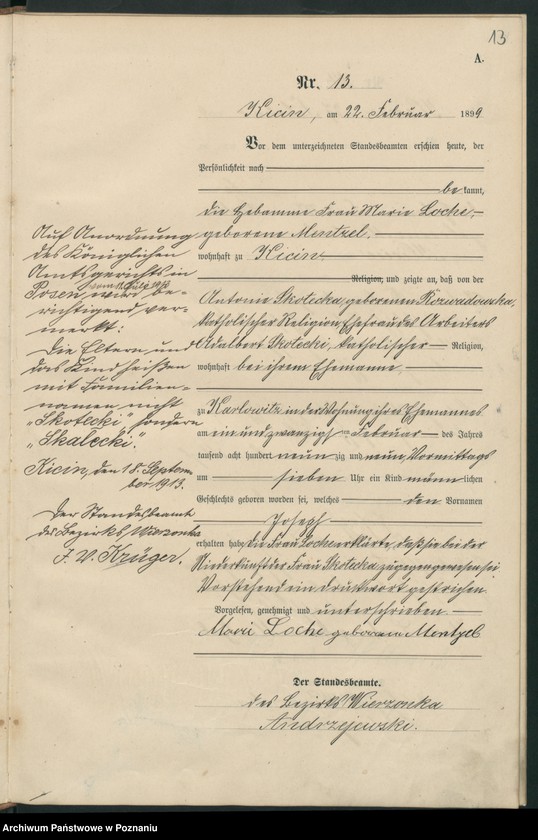 13
A.
Nr. 13.
Kicin, am 22. Februar 1899
Vor dem unterzeichneten Standesbeamten erschien heute, der
Persönlichkeit nach
bekannt,
die Hebamme Frau Marie Loche,
geborene Mentzel.
wohnhaft zu Kicin
Religion, und zeigte an, daß von der
Antonie Skotecka, geborenen Rozwadowska,
katholischer Religion, Ehefrau des Arbeiters
Adalbert Skotecki, katholischer Religion,
wohnhaft bei ihrem Ehemanne
zu Karlowitz in der Wohnung ihres Ehemannes
am ein und zwanzigsten Februar des Jahres
tausend acht hundert neunzig und neun, Vormittags
um sieben Uhr ein Kind männlichen
Geschlechts geboren worden sei, welches den Vornamen
Joseph
erhalten habe. Die Frau Loche erklärte, daß sie bei der
Niederkunft der Frau Skotecka zugegen gewesen sei
Vorstehend ein Druckwort gestrichen.
Vorgelesen, genehmigt und unterschrieben
Marie Loche geborene Mentzel
Der Standesbeamte.
des Bezirks Wierzonka
Andrzejewski.
Auf Anordnung
des Königlichen
Amtsgerichts in
Posen vom 11. Juli 1913 wird be-
richtigend ver-
merkt:
Die Eltern und
das Kind heißen
mit Familien-
namen nicht
"Skotecki", sondern
"Skalecki".
Kicin, den 18. Septem-
ber 1913.
Der Standesbeamte
des Bezirks Wierzonka
J. V. Krüger.
Archiwum Państwowe w Poznaniu